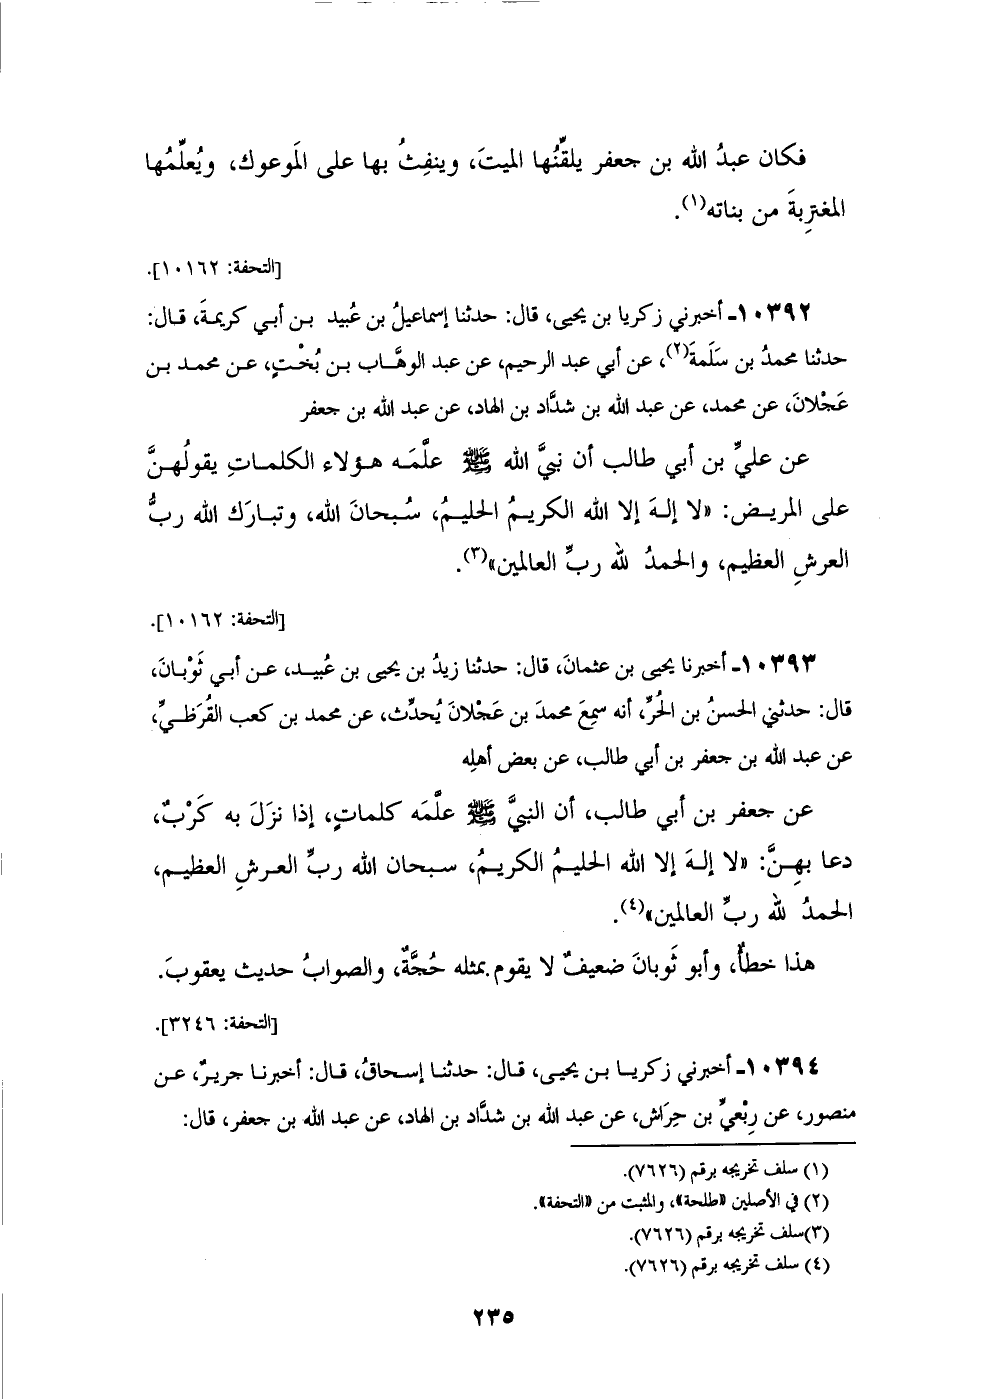 فكان عبدُ الله بن جعفر يلقِّنُها الميتَ، وينفِثُ بها على المَوعوك، ويُعلِّمُها
المغترِبةَ من بناته(١).
[التحفة: ١٠١٦٢].
١٠٣٩٢ـ أخبرني زكريا بن يحيى، قال: حدثنا إسماعيلُ بن عُبيد بن أبي كريمةَ، قال:
حدثنا محمدُ بن سَلَمةَ(٢)، عن أبي عبد الرحيم، عن عبد الوهَّاب بن بُخْتٍ، عن محمد بن
عَجْلانَ، عن محمد، عن عبد الله بن شدَّاد بن الهاد، عن عبد الله بن جعفر
عن عليِّ بن أبي طالب أن نبيَّ الله ﷺ علَّمَه هؤلاء الكلماتِ يقولُهنَّ
على المريض: «لا إلهَ إلا الله الكريمُ الحليمُ، سُبحانَ الله، وتبارك الله ربُّ
العرشِ العظيم، والحمدُ لله ربِّ العالمين»(٣).
[التحفة: ١٠١٦٢].
١٠٣٩٣ـ أخبرنا يحيى بن عثمانَ، قال: حدثنا زيدُ بن يحيى بن عُبيد، عن أبي ثَوْبانَ،
قال: حدثني الحسنُ بن الحُرِّ، أنه سمِعَ محمدَ بن عَجْلانَ يُحدِّث، عن محمد بن كعب القُرَظيِّ،
عن عبد الله بن جعفر بن أبي طالب، عن بعض أهلِه
عن جعفر بن أبي طالب، أن النبيَّ ﷺ علَّمَه كلماتٍ، إذا نزَلَ به كَرْبٌ،
دعا بهِنَّ: «لا إلهَ إلا الله الحليمُ الكريمُ، سبحان الله ربِّ العرشِ العظيم،
الحمدُ لله ربِّ العالمين»(٤).
هذا خطأٌ، وأبو ثَوبانَ ضعيفٌ لا يقوم بمثله حُجَّةٌ، والصوابُ حديث يعقوبَ.
[التحفة: ٣٢٤٦].
١٠٣٩٤ـ أخبرني زكريا بن يحيى، قال: حدثنا إسحاقُ، قال: أخبرنا جريرٌ، عن
منصور، عن رِبْعيِّ بن حِرَاش، عن عبد الله بن شدَّاد بن الهاد، عن عبد الله بن جعفر، قال:
(١) سلف تخريجه برقم (٧٦٢٦).
(٢) في الأصلين «طلحة»، والمثبت من «التحفة».
(٣)سلف تخريجه برقم (٧٦٢٦).
(٤) سلف تخريجه برقم (٧٦٢٦).
٢٣٥